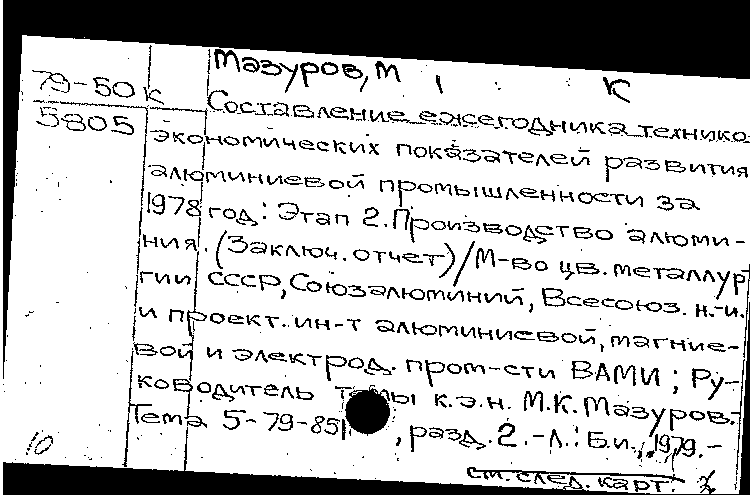 Мазуров, М К
79-50 к
5805
Составление ежегодника технико-
экономических показателей развития
алюминиевой промышленности за
1978 год: Этап 2. Производство алюми-
ния. (Заключ. отчет) / М-во цв. металлур
гии СССР, Союзалюминий, Всесоюз. н.-и.
и проект. ин-т алюминиевой, магние-
вой и электрод. пром-сти ВАМИ; Ру-
ководитель темы к.э.н. М.К. Мазуров.-
Тема 5-79-851 , разд. 2. -Л.: Б.и., 1979. -
10
см. след. карт